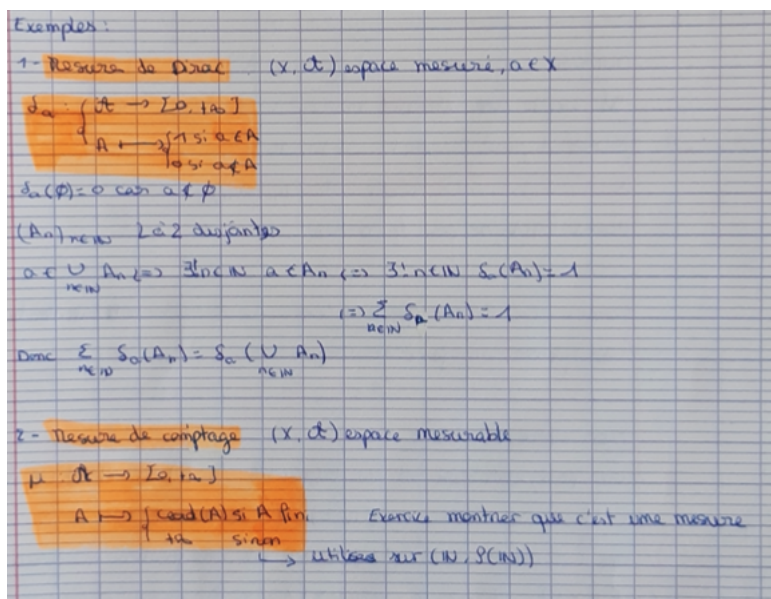 Exemples :
1 - Mesure de Dirac (X, 𝒜) espace mesuré, a ∈ X
δa : { 𝒜 → [0, +∞]
A ↦ { 1 si a ∈ A
0 si a ∉ A
δa(∅) = 0 car a ∉ ∅
(An)n∈ℕ 2 à 2 disjointes
a ∈ ∪ An <=> ∃!n∈ℕ a ∈ An <=> ∃!n∈ℕ δa(An) = 1
n∈ℕ
<=> Σ δa(An) = 1
n∈ℕ
Donc Σ δa(An) = δa(∪ An)
n∈ℕ n∈ℕ
2 - Mesure de comptage (X, 𝒜) espace mesurable
μ : 𝒜 → [0, +∞]
A ↦ { card(A) si A fini Exercice montrer que c'est une mesure
+∞ sinon
↳ utilisée sur (ℕ, 𝒫(ℕ))